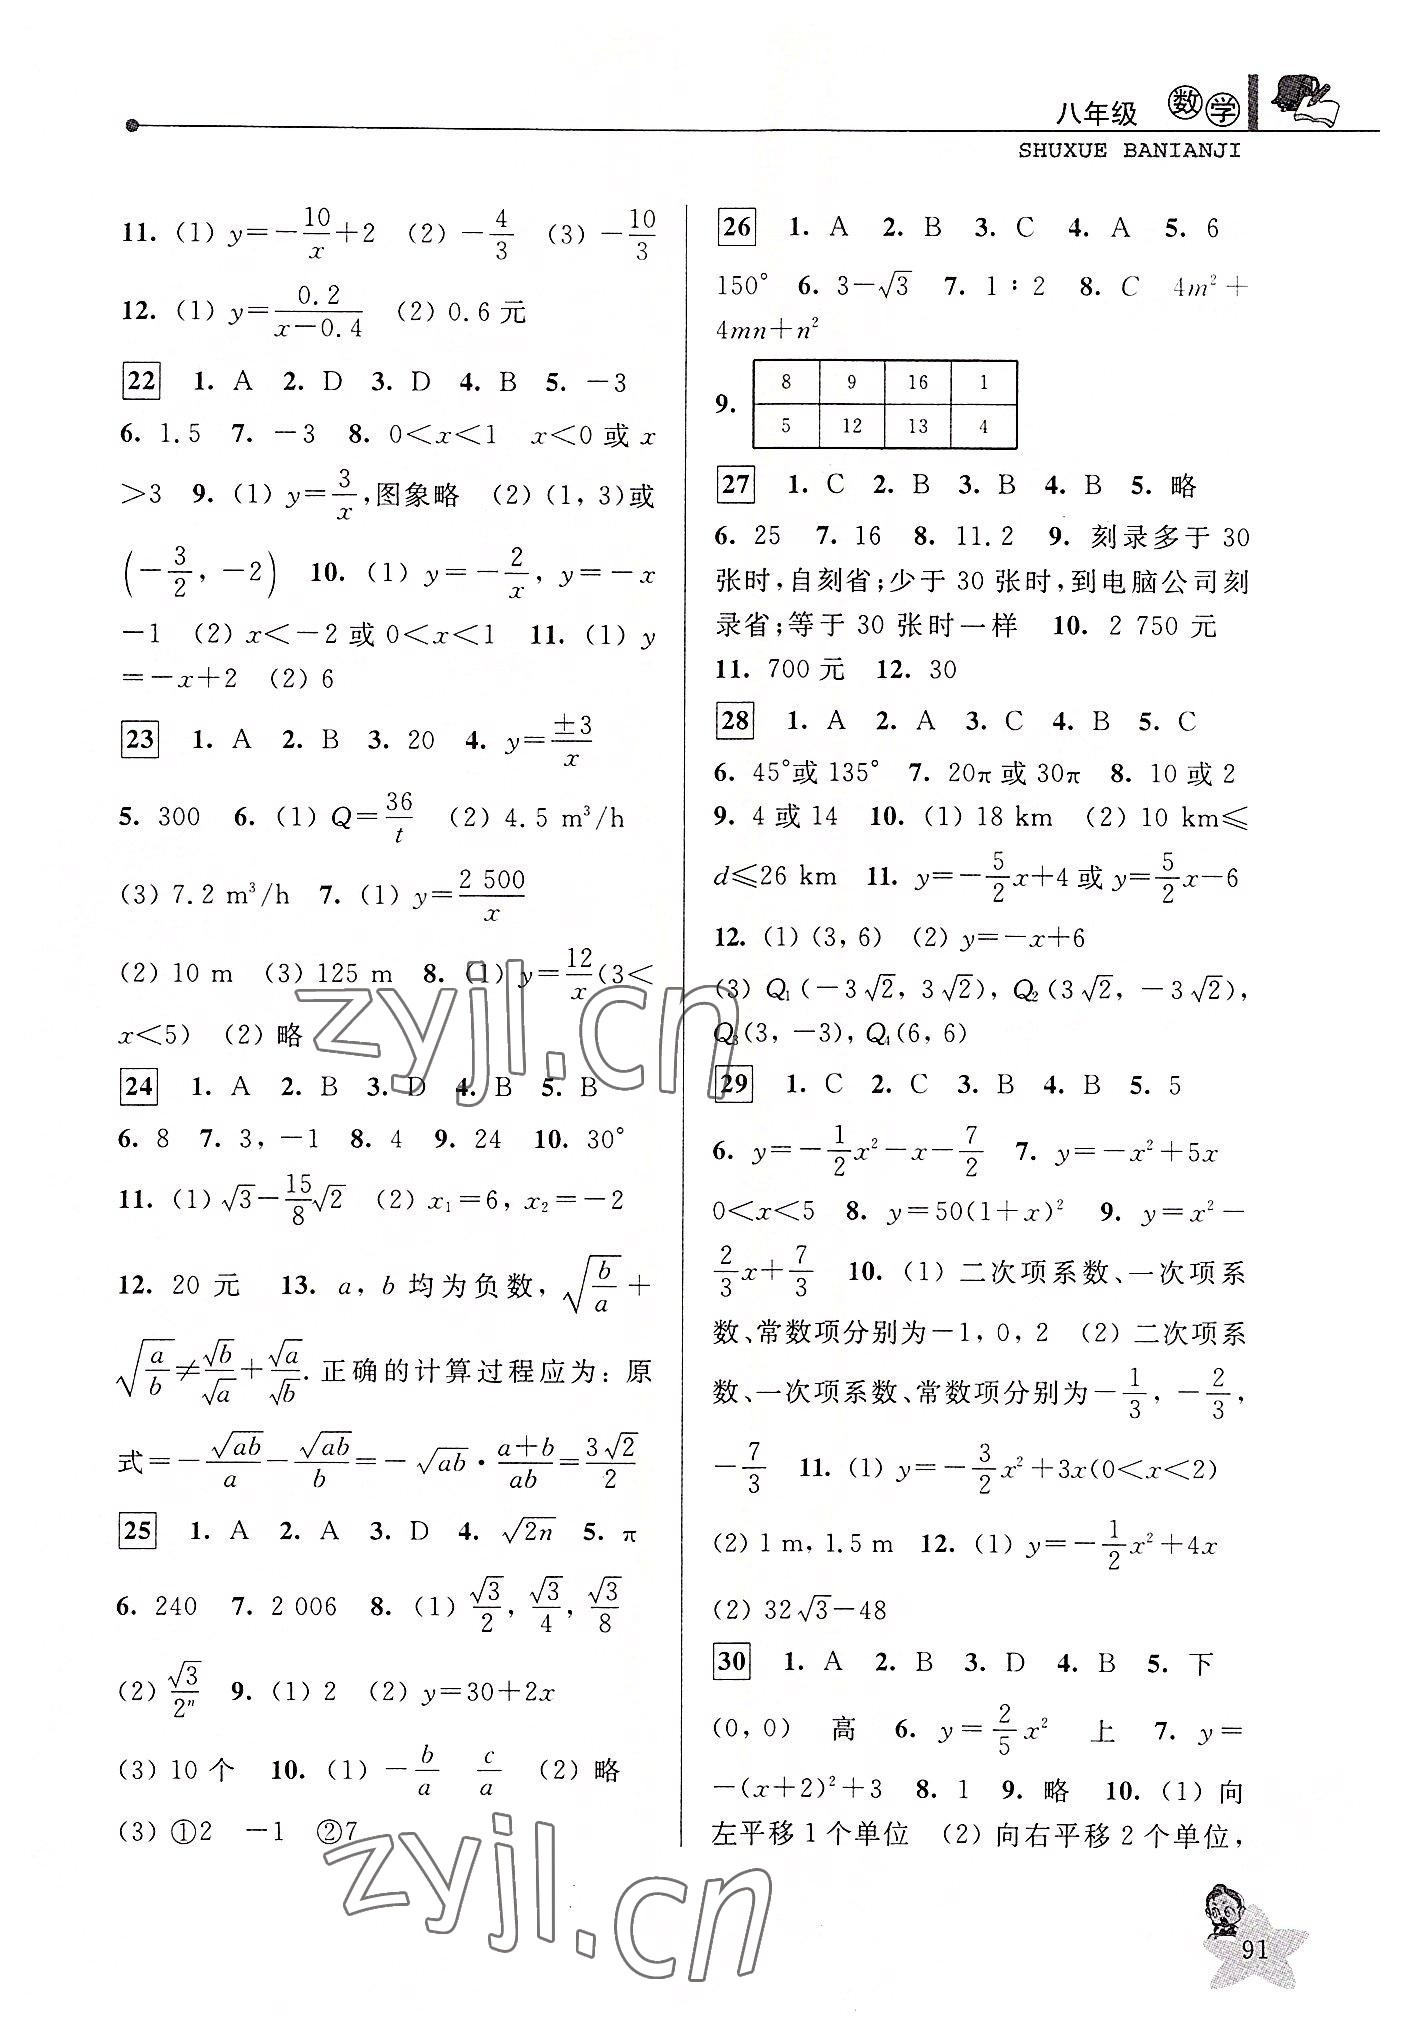 八年级 数学
SHUXUE BANIANJI
11. (1) y=-10/x+2 (2) -4/3 (3) -10/3
12. (1) y=0.2/(x-0.4) (2) 0.6元
22 1. A 2. D 3. D 4. B 5. -3
6. 1.5 7. -3 8. 0<x<1 x<0或x
>3 9. (1) y=3/x,图象略 (2) (1, 3)或
(-3/2, -2) 10. (1) y=-2/x, y=-x
-1 (2) x<-2或0<x<1 11. (1) y
=-x+2 (2) 6
23 1. A 2. B 3. 20 4. y=±3/x
5. 300 6. (1) Q=36/t (2) 4.5 m³/h
(3) 7.2 m³/h 7. (1) y=2 500/x
(2) 10 m (3) 125 m 8. (1) y=12/x(3<
x<5) (2) 略
24 1. A 2. B 3. D 4. B 5. B
6. 8 7. 3, -1 8. 4 9. 24 10. 30°
11. (1) √3-15/8√2 (2) x₁=6, x₂=-2
12. 20元 13. a, b均为负数, √(b/a)+
√(a/b)≠√b/√a+√a/√b. 正确的计算过程应为: 原
式=-√ab/a-√ab/b=-√ab·(a+b)/ab=3√2/2
25 1. A 2. A 3. D 4. √2n 5. π
6. 240 7. 2 006 8. (1) √3/2, √3/4, √3/8
(2) √3/2ⁿ 9. (1) 2 (2) y=30+2x
(3) 10个 10. (1) -b/a c/a (2) 略
(3) ①2 -1 ②7
26 1. A 2. B 3. C 4. A 5. 6
150° 6. 3-√3 7. 1∶2 8. C 4m²+
4mn+n²
9.
8 9 16 1
5 12 13 4
27 1. C 2. B 3. B 4. B 5. 略
6. 25 7. 16 8. 11.2 9. 刻录多于30
张时,自刻省;少于30张时,到电脑公司刻
录省;等于30张时一样 10. 2 750元
11. 700元 12. 30
28 1. A 2. A 3. C 4. B 5. C
6. 45°或135° 7. 20π或30π 8. 10或2
9. 4或14 10. (1) 18 km (2) 10 km≤
d≤26 km 11. y=-5/2x+4或y=5/2x-6
12. (1) (3, 6) (2) y=-x+6
(3) Q₁(-3√2, 3√2), Q₂(3√2, -3√2),
Q₃(3, -3), Q₄(6, 6)
29 1. C 2. C 3. B 4. B 5. 5
6. y=-1/2x²-x-7/2 7. y=-x²+5x
0<x<5 8. y=50(1+x)² 9. y=x²-
2/3x+7/3 10. (1) 二次项系数、一次项系
数、常数项分别为-1, 0, 2 (2) 二次项系
数、一次项系数、常数项分别为-1/3, -2/3,
-7/3 11. (1) y=-3/2x²+3x(0<x<2)
(2) 1 m, 1.5 m 12. (1) y=-1/2x²+4x
(2) 32√3-48
30 1. A 2. B 3. D 4. B 5. 下
(0, 0) 高 6. y=2/5x² 上 7. y=
-(x+2)²+3 8. 1 9. 略 10. (1) 向
左平移1个单位 (2) 向右平移2个单位,
zyjl.cn
zyjl.cn
91